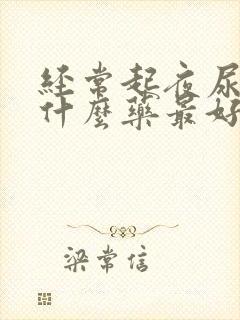 经常起夜尿
什麼藥最好
梁常信